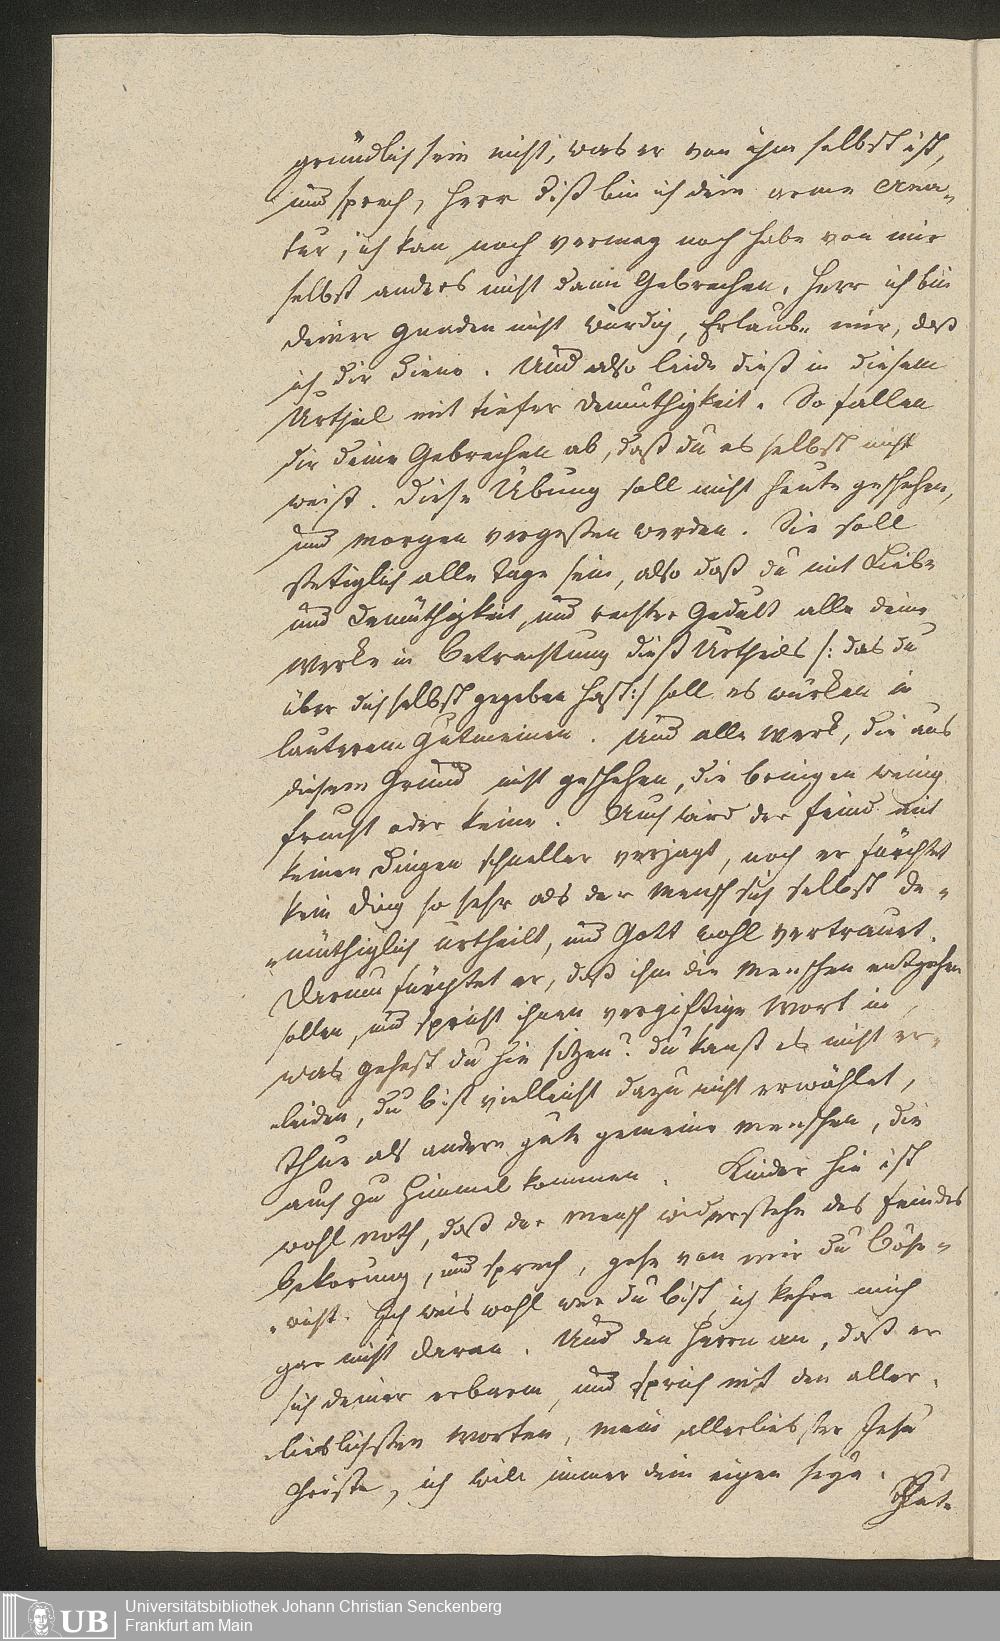 gründlich sein nicht, was er von ihm selbst ist,
und sprech, Herr diß bin ich dein arme Crea-
tur, ich kan noch vermag noch habe von mir
selbst anders nicht dann Gebrechen. Herr ich bin
deiner Gnaden nicht würdig, Erlaube mir, daß
ich dir diene. Und also leide dieß in diesem
Urtheil mit tiefer Demüthigkeit. So fallen
dir deine Gebrechen ab, daß du es selbst nicht
weist. Diese Übung soll nicht heute geschehen,
und morgen vergeßen werden. Sie soll
stetiglich alle Tage sein, also daß du mit Liebe
und Demüthigkeit, und rechter Gedult alle deine
Werke in Betrachtung dieß Urtheils /: das du
über dich selbst gegeben hast:/ soll es würken in
lauterem Gutmeinen. Und alle Werk, die aus
diesem Grund nicht geschehen, die bringen wenig
frucht oder keine. Auch wird der feind mit
keinen Dingen schneller verjagt, noch er fürchtet
kein Ding so sehr als der Mensch sich selbst de-
-müthiglich urtheilt, und Gott wohl vertrauet.
Darum fürchtet er, daß ihm die Menschen entgehen
sollen, und spricht ihnen vergiftige Wort in,
was gehest du hie sitzen? du kanst es nicht er-
-leiden, du bist vielleicht dazu nicht erwählet,
Thue als andere gute gemeine Menschen, die
auch zu Himmel kommen. Kinder hie ist
wohl noth, daß der Mensch widerstehe des feindes
bekorung, und sprech, gehe von mir du Böse-
-wicht. Ich weis wohl wer du bist, ich kehre mich
gar nicht daran. Und den Herrn an, daß er
sich deiner erbarm, und sprich mit den aller-
-lieblichsten Worten, mein allerliebster Jesu
Christe, ich will immer dein eigen seyn.
Thate
Universitätsbibliothek Johann Christian Senckenberg
Frankfurt am Main
UB